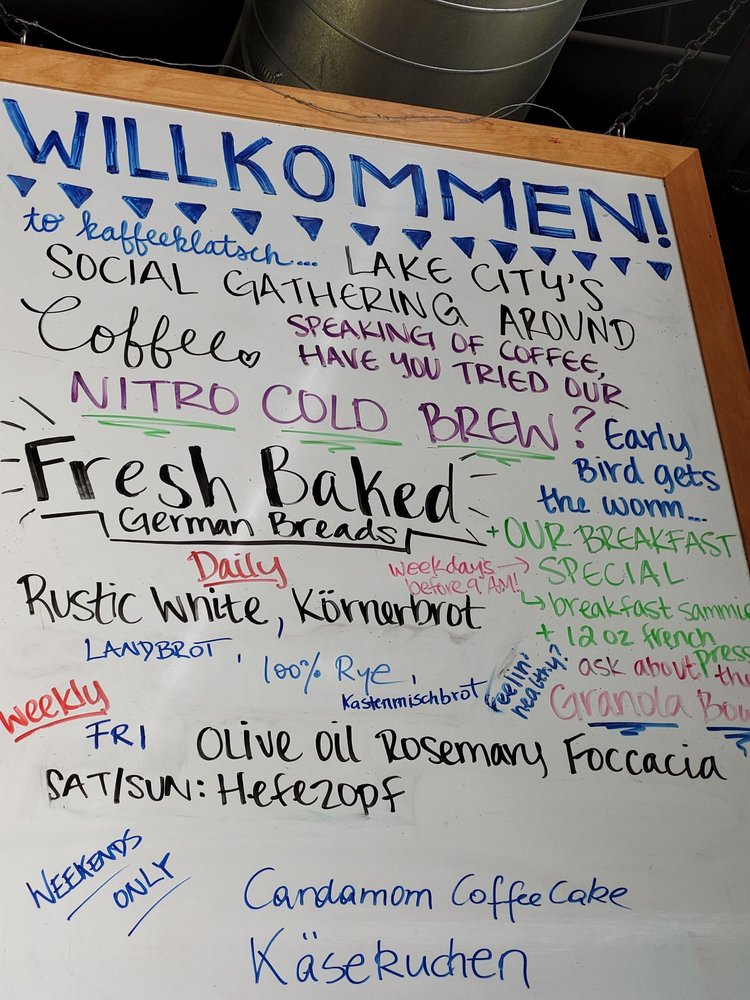 WILLKOMMEN!
to kaffeeklatsch... LAKE CITY'S
SOCIAL GATHERING AROUND
Coffee
SPEAKING OF COFFEE,
HAVE YOU TRIED OUR
NITRO COLD BREW?
Early
Bird gets
the worm...
Fresh Baked
German Breads
+ OUR BREAKFAST
SPECIAL
weekdays
before 9 AM!
breakfast sammie
+ 12 oz french
press
Daily
Rustic White, Körnerbrot
LANDBROT, 100% Rye,
Kastenmischbrot
Feelin'
healthy?
ask about the
Granola Bowl
Weekly
FRI Olive Oil Rosemary Foccacia
SAT/SUN: Hefezopf
WEEKENDS
ONLY
Candamom Coffee Cake
Käsekuchen